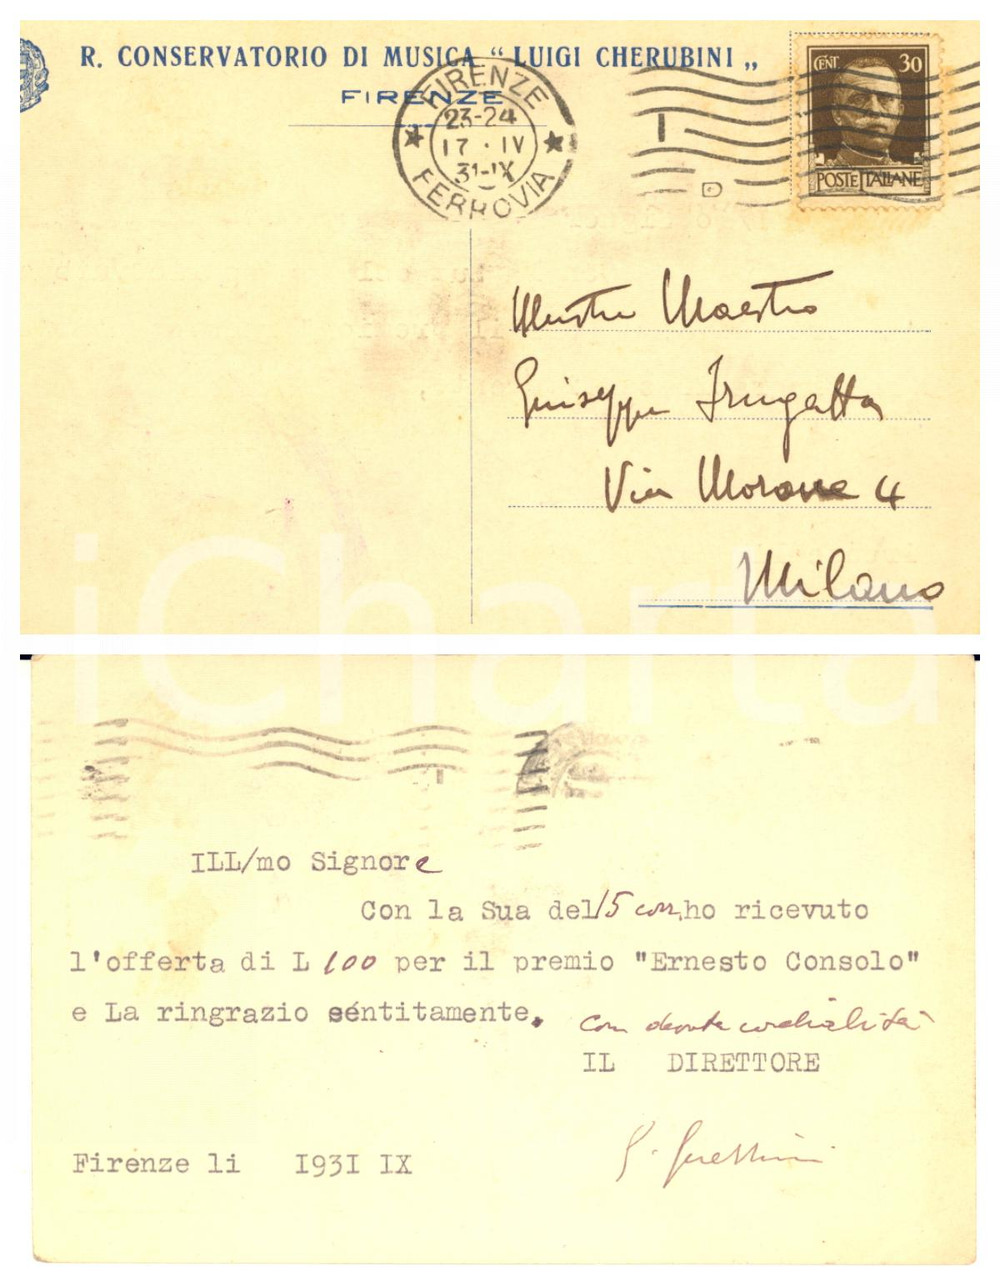 R. CONSERVATORIO DI MUSICA “ LUIGI CHERUBINI „
FIRENZE
FIRENZE
23-24
17 · IV
31-IX
FERROVIA
CENT. 30
POSTE ITALIANE
Illustre Maestro
Giuseppe Frugatta
Via Morone 4
Milano
iCharta
ILL/mo Signore
Con la Sua del 15 corr. ho ricevuto
l'offerta di L 100 per il premio "Ernesto Consolo"
e La ringrazio séntitamente.
con devota cordialità
IL DIRETTORE
Firenze li I93I IX